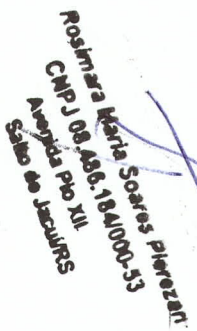 Rosimara Maria Soares Pierezan
CNPJ 08.486.184/000-53
Avenida Pio XII,
Salto do Jacuí/RS